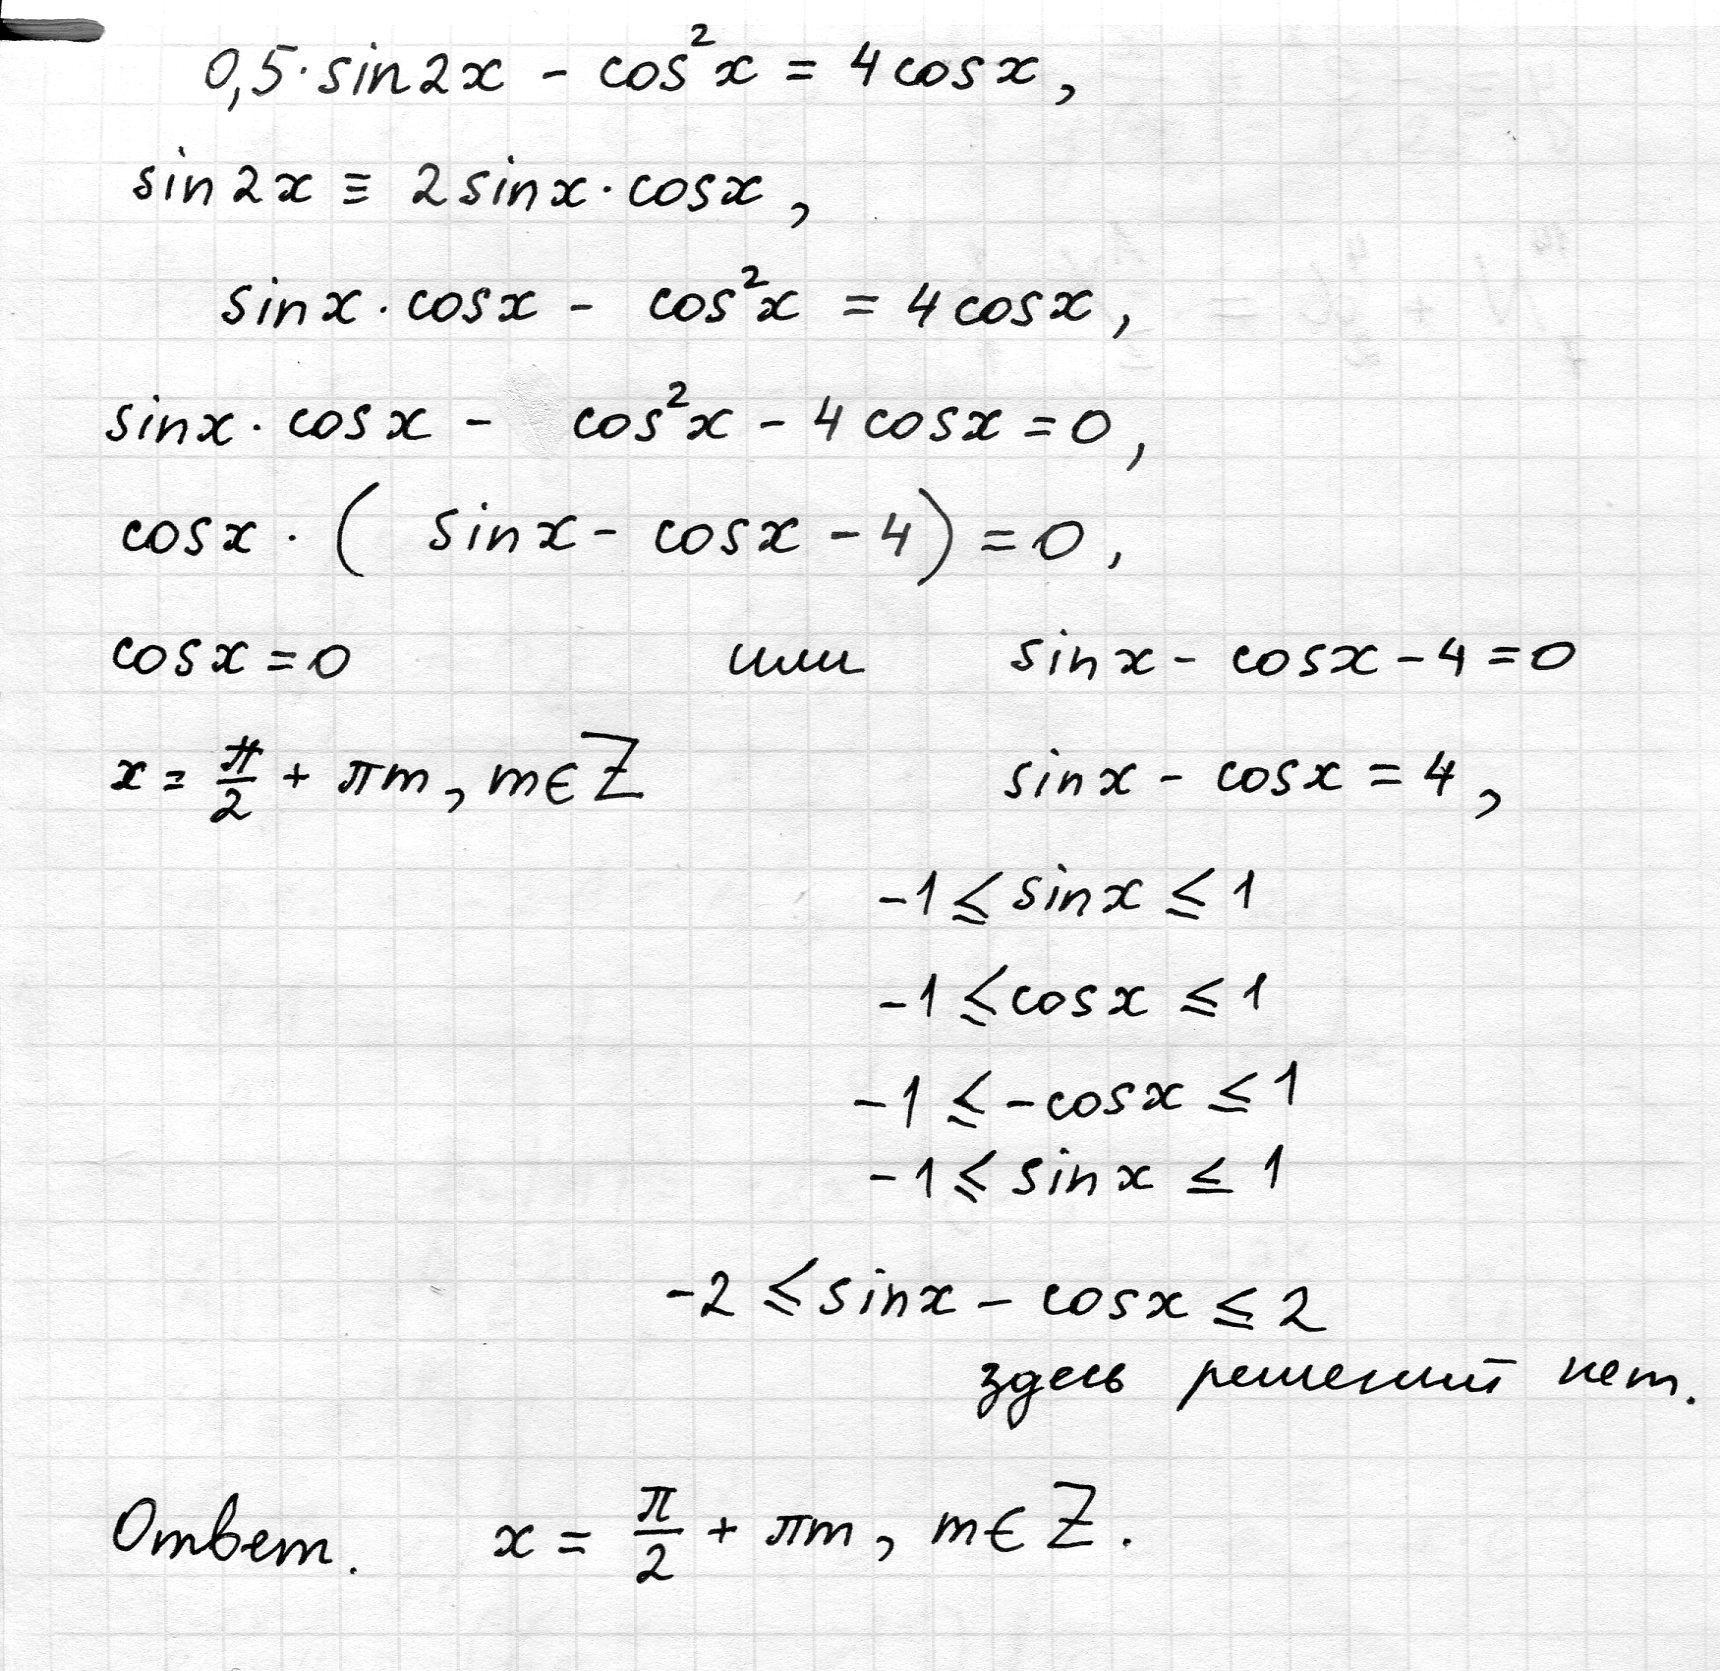 0,5·sin2x - cos²x = 4cosx,
sin2x ≡ 2sinx·cosx,
sinx·cosx - cos²x = 4cosx,
sinx·cosx - cos²x - 4cosx = 0,
cosx·( sinx - cosx - 4) = 0,
cosx = 0 или sinx - cosx - 4 = 0
x = π/2 + πm, m∈Z sinx - cosx = 4,
-1 ≤ sinx ≤ 1
-1 ≤ cosx ≤ 1
-1 ≤ -cosx ≤ 1
-1 ≤ sinx ≤ 1
-2 ≤ sinx - cosx ≤ 2
здесь решений нет.
Ответ. x = π/2 + πm, m∈Z.